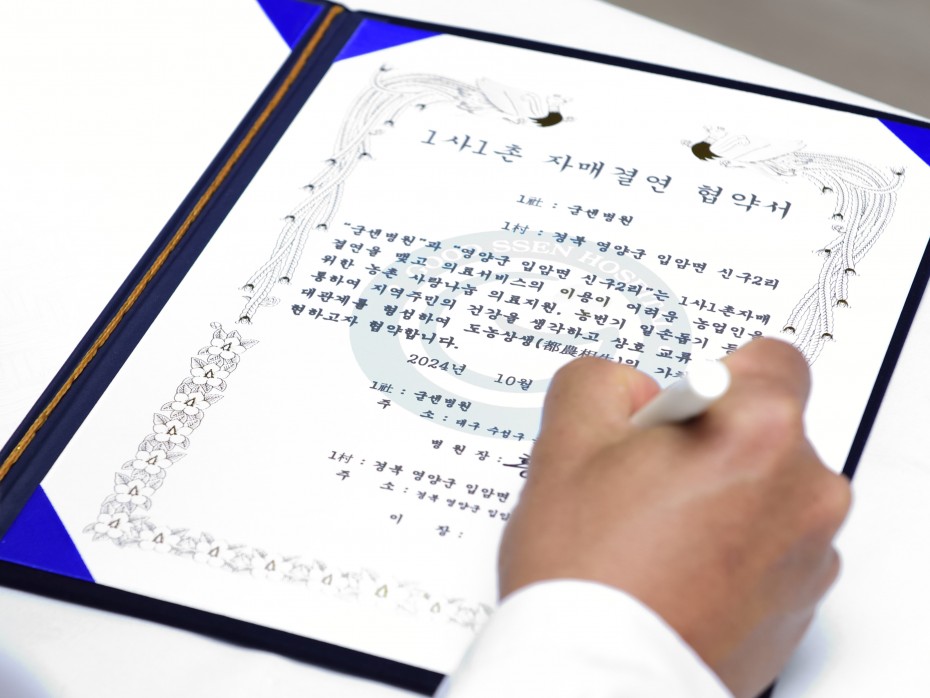 1사1촌 자매결연 협약서
1社 : 굿센병원
1村 : 경북 영양군 입암면 신구2리
"굿센병원"과 "영양군 입암면 신구2리"는 1사1촌자매
결연을 맺고 의료서비스의 이용이 어려운 농업인을
위한 농촌 사랑나눔 의료지원, 농번기 일손돕기 등
통하여 지역주민의 건강을 생각하고 상호 교류
대관계를 형성하여 도농상생(都農相生)의 가치
현하고자 협약합니다.
2024년 10월
1社 : 굿센병원
주 소 : 대구 수성구
병 원 장 :
1村 : 경북 영양군 입암면
주 소 : 경북 영양군 입암
이 장 :
GOOD SSEN HOSPITAL